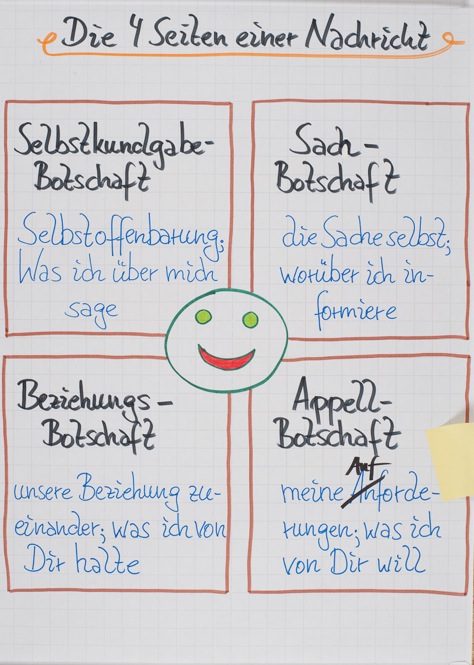 Die 4 Seiten einer Nachricht
Selbstkundgabe-
Botschaft
Selbstoffenbarung;
Was ich über mich
sage
Sach-
Botschaft
die Sache selbst;
worüber ich in-
formiere
Beziehungs-
Botschaft
unsere Beziehung zu-
einander; was ich von
Dir halte
Appell-
Botschaft
Auf
meine Anforde-
rungen; was ich
von Dir will